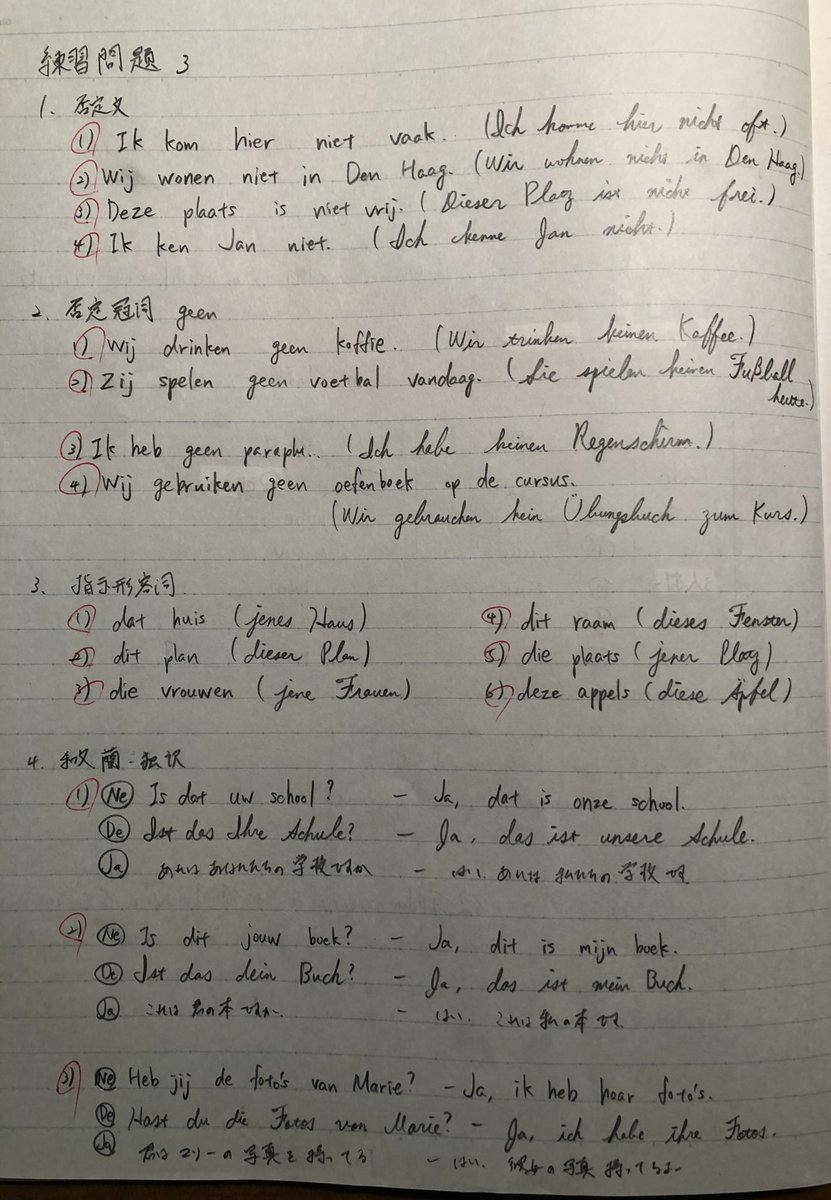 練習問題 3
1. 否定文
1) Ik kom hier niet vaak. (Ich komme hier nicht oft.)
2) Wij wonen niet in Den Haag. (Wir wohnen nicht in Den Haag.)
3) Deze plaats is niet vrij. (Dieser Platz ist nicht frei.)
4) Ik ken Jan niet. (Ich kenne Jan nicht.)
2. 否定冠词 geen
1) Wij drinken geen koffie. (Wir trinken keinen Kaffee.)
2) Zij spelen geen voetbal vandaag. (Sie spielen keinen Fußball
heute.)
3) Ik heb geen (Ich habe keinen Regenschirm.)
4) Wij gebruiken geen oefenboek op de cursus.
(Wir gebrauchen kein Übungsbuch zum Kurs.)
3. 指示形容词
1) dat huis (jenes Haus) 4) dit raam (dieses Fenster)
2) dit plan (dieser Plan) 5) die plaats (jener Platz)
3) die vrouwen (jene Frauen) 6) deze appels (diese Äpfel)
4. 和文蘭・独訳
1) Ne Is dat uw school? – Ja, dat is onze school.
De Ist das Ihre Schule? – Ja, das ist unsere Schule.
Ja あれは あなたたちの学校ですか – はい、あれは 私たちの学校です.
2) Ne Is dit jouw boek? – Ja, dit is mijn boek.
De Ist das dein Buch? – Ja, das ist mein Buch.
Ja これは 君の本ですか – はい、これは 私の本です.
3) Ne Heb jij de foto's van Marie? – Ja, ik heb haar foto's.
De Hast du die Fotos von Marie? – Ja, ich habe ihre Fotos.
Ja 君は マリーの写真を持ってる – はい、彼女の写真持ってるよー